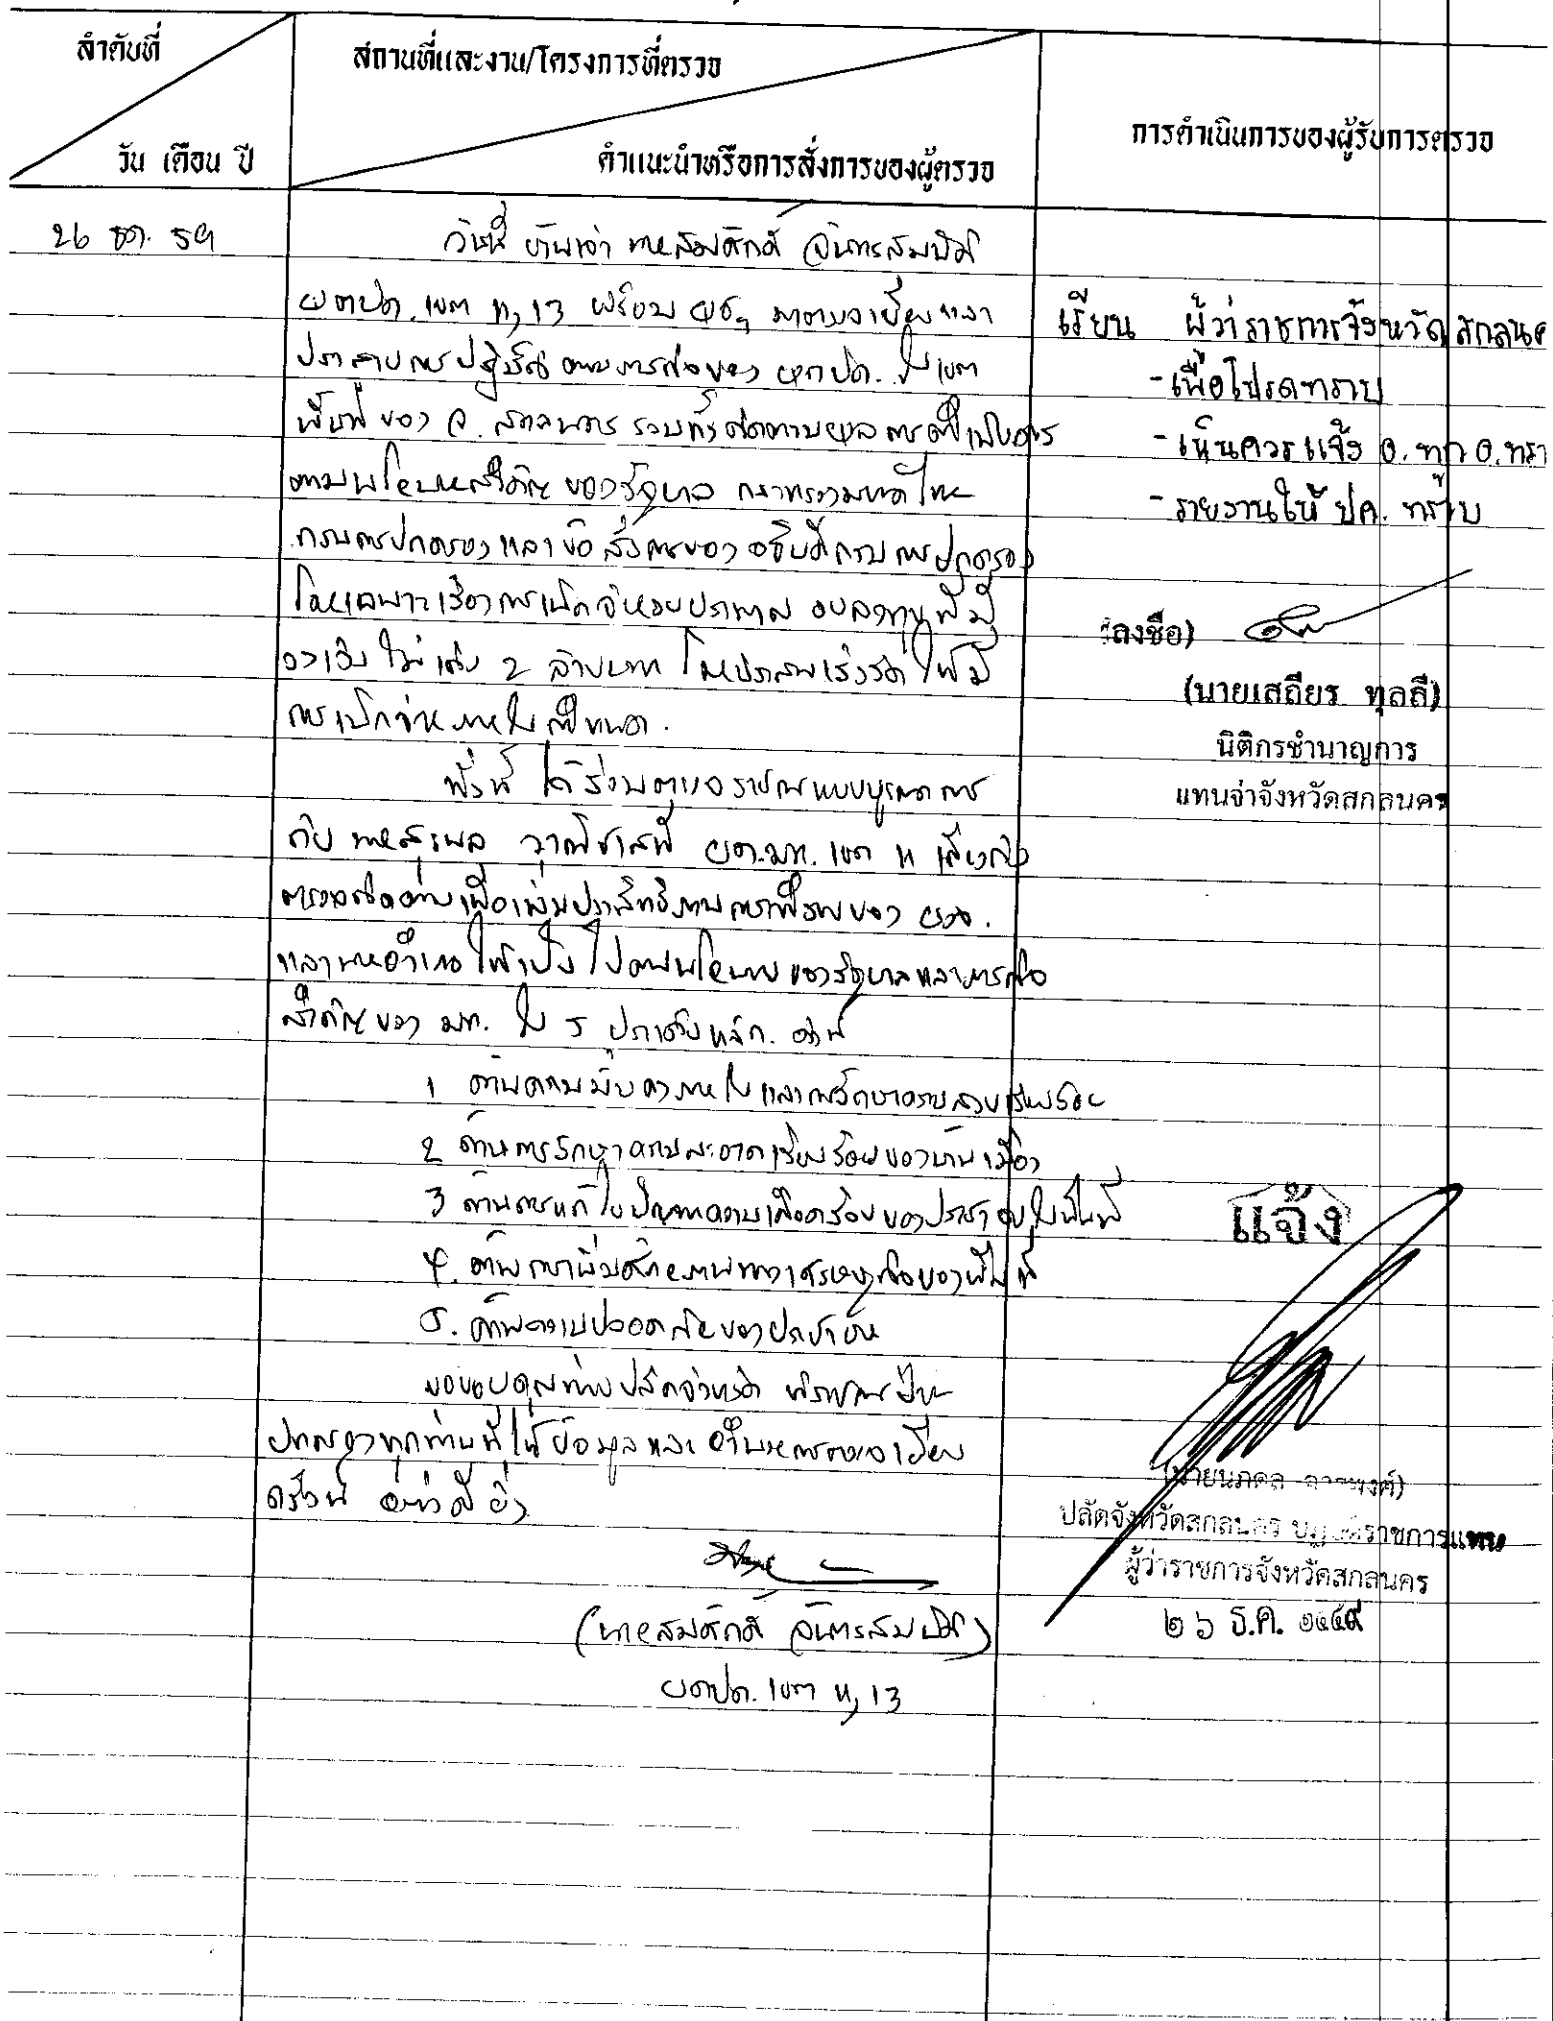 ลำดับที่
สถานที่และงาน/โครงการที่ตรวจ
การดำเนินการของผู้รับการตรวจ
วัน เดือน ปี
คำแนะนำหรือการสั่งการของผู้ตรวจ
26 ธค. 59
วันนี้ ข้าพเจ้า นายสมศักดิ์ จันทรสมบัติ
ผตปค. เขต 11, 13 พร้อม ผช.ฯ มาตรวจเยี่ยมและ
ตามภารกิจของ ผตปค. ในเขต
พื้นที่ของ จ. สกลนคร รวมทั้งติดตามผลการดำเนินการ
ตามนโยบายสำคัญ ของรัฐบาล กระทรวงมหาดไทย
กรมการปกครอง และข้อสั่งการของ อธิบดีกรมการปกครอง
โดยเฉพาะเรื่องการเบิกจ่ายงบประมาณ งบลงทุน ที่มี
วงเงิน ไม่เกิน 2 ล้านบาท ให้มี
การเบิกจ่ายภายในกำหนด.
ทั้งนี้ ได้ร่วมตรวจราชการแบบบูรณาการ
กับ เขต 11
ตรวจติดตามเพื่อเพิ่มประสิทธิภาพการทำงานของ ผวจ.
และนายอำเภอ ให้เป็นไปตามนโยบายของรัฐบาลและภารกิจ
สำคัญของ มท. ใน 5 ประเด็นหลัก. ดังนี้
1 ด้านความมั่นคงภายในและการรักษาความสงบเรียบร้อย
2 ด้านการรักษาความสะอาดเรียบร้อยของบ้านเมือง
3 ด้านการแก้ไขปัญหาความเดือดร้อนของประชาชนในพื้นที่
4. ด้านการเพิ่มศักยภาพทางเศรษฐกิจของพื้นที่
5. ด้านความปลอดภัยของประชาชน
ขอขอบคุณท่านปลัดจังหวัด
ปกครองทุกท่านที่ให้ข้อมูลและอำนวยการตรวจเยี่ยม
ครั้งนี้ อย่างดียิ่ง
(นายสมศักดิ์ จันทรสมบัติ)
ผตปค. เขต 11, 13
เรียน ผู้ว่าราชการจังหวัดสกลนคร
- เพื่อโปรดทราบ
- เห็นควรแจ้ง อ. ทุก อ. ทรา
- รายงานให้ ปค. ทราบ
(ลงชื่อ)
(นายเสถียร ทุลลี)
นิติกรชำนาญการ
แทนจ่าจังหวัดสกลนคร
แจ้ง
ปลัดจังหวัดสกลนคร ปฏิบัติราชการแทน
ผู้ว่าราชการจังหวัดสกลนคร
๒๖ ธ.ค. ๒๕๕๙